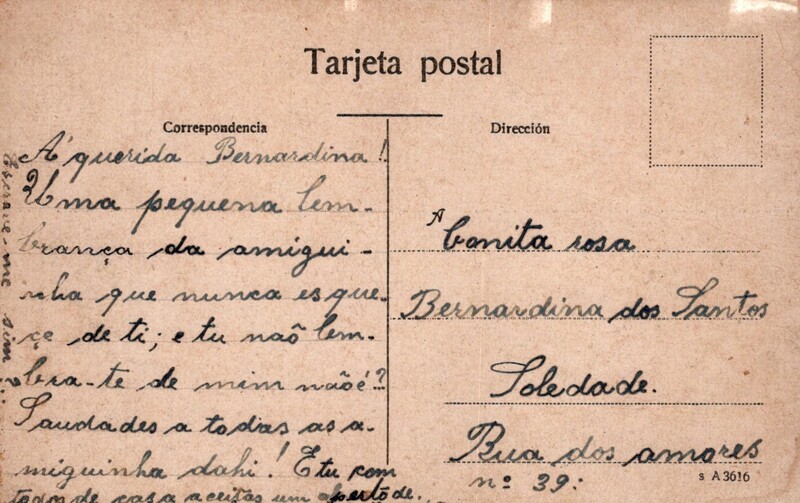 Tarjeta postal
Correspondencia
Dirección
A' querida Bernardina!
Uma pequena lem-
brança da amigui-
nha que nunca esque-
çe de ti; e tu naõ lem-
bra-te de mim naõ é?
Saudades a todas as a-
miguinha dahi! E tu com
todos de casa aceitas um aperto de.
Escreve-me sim?..
A bonita rosa
Bernardina dos Santos
Soledade.
Rua dos amores
nº 39:
s A 3616